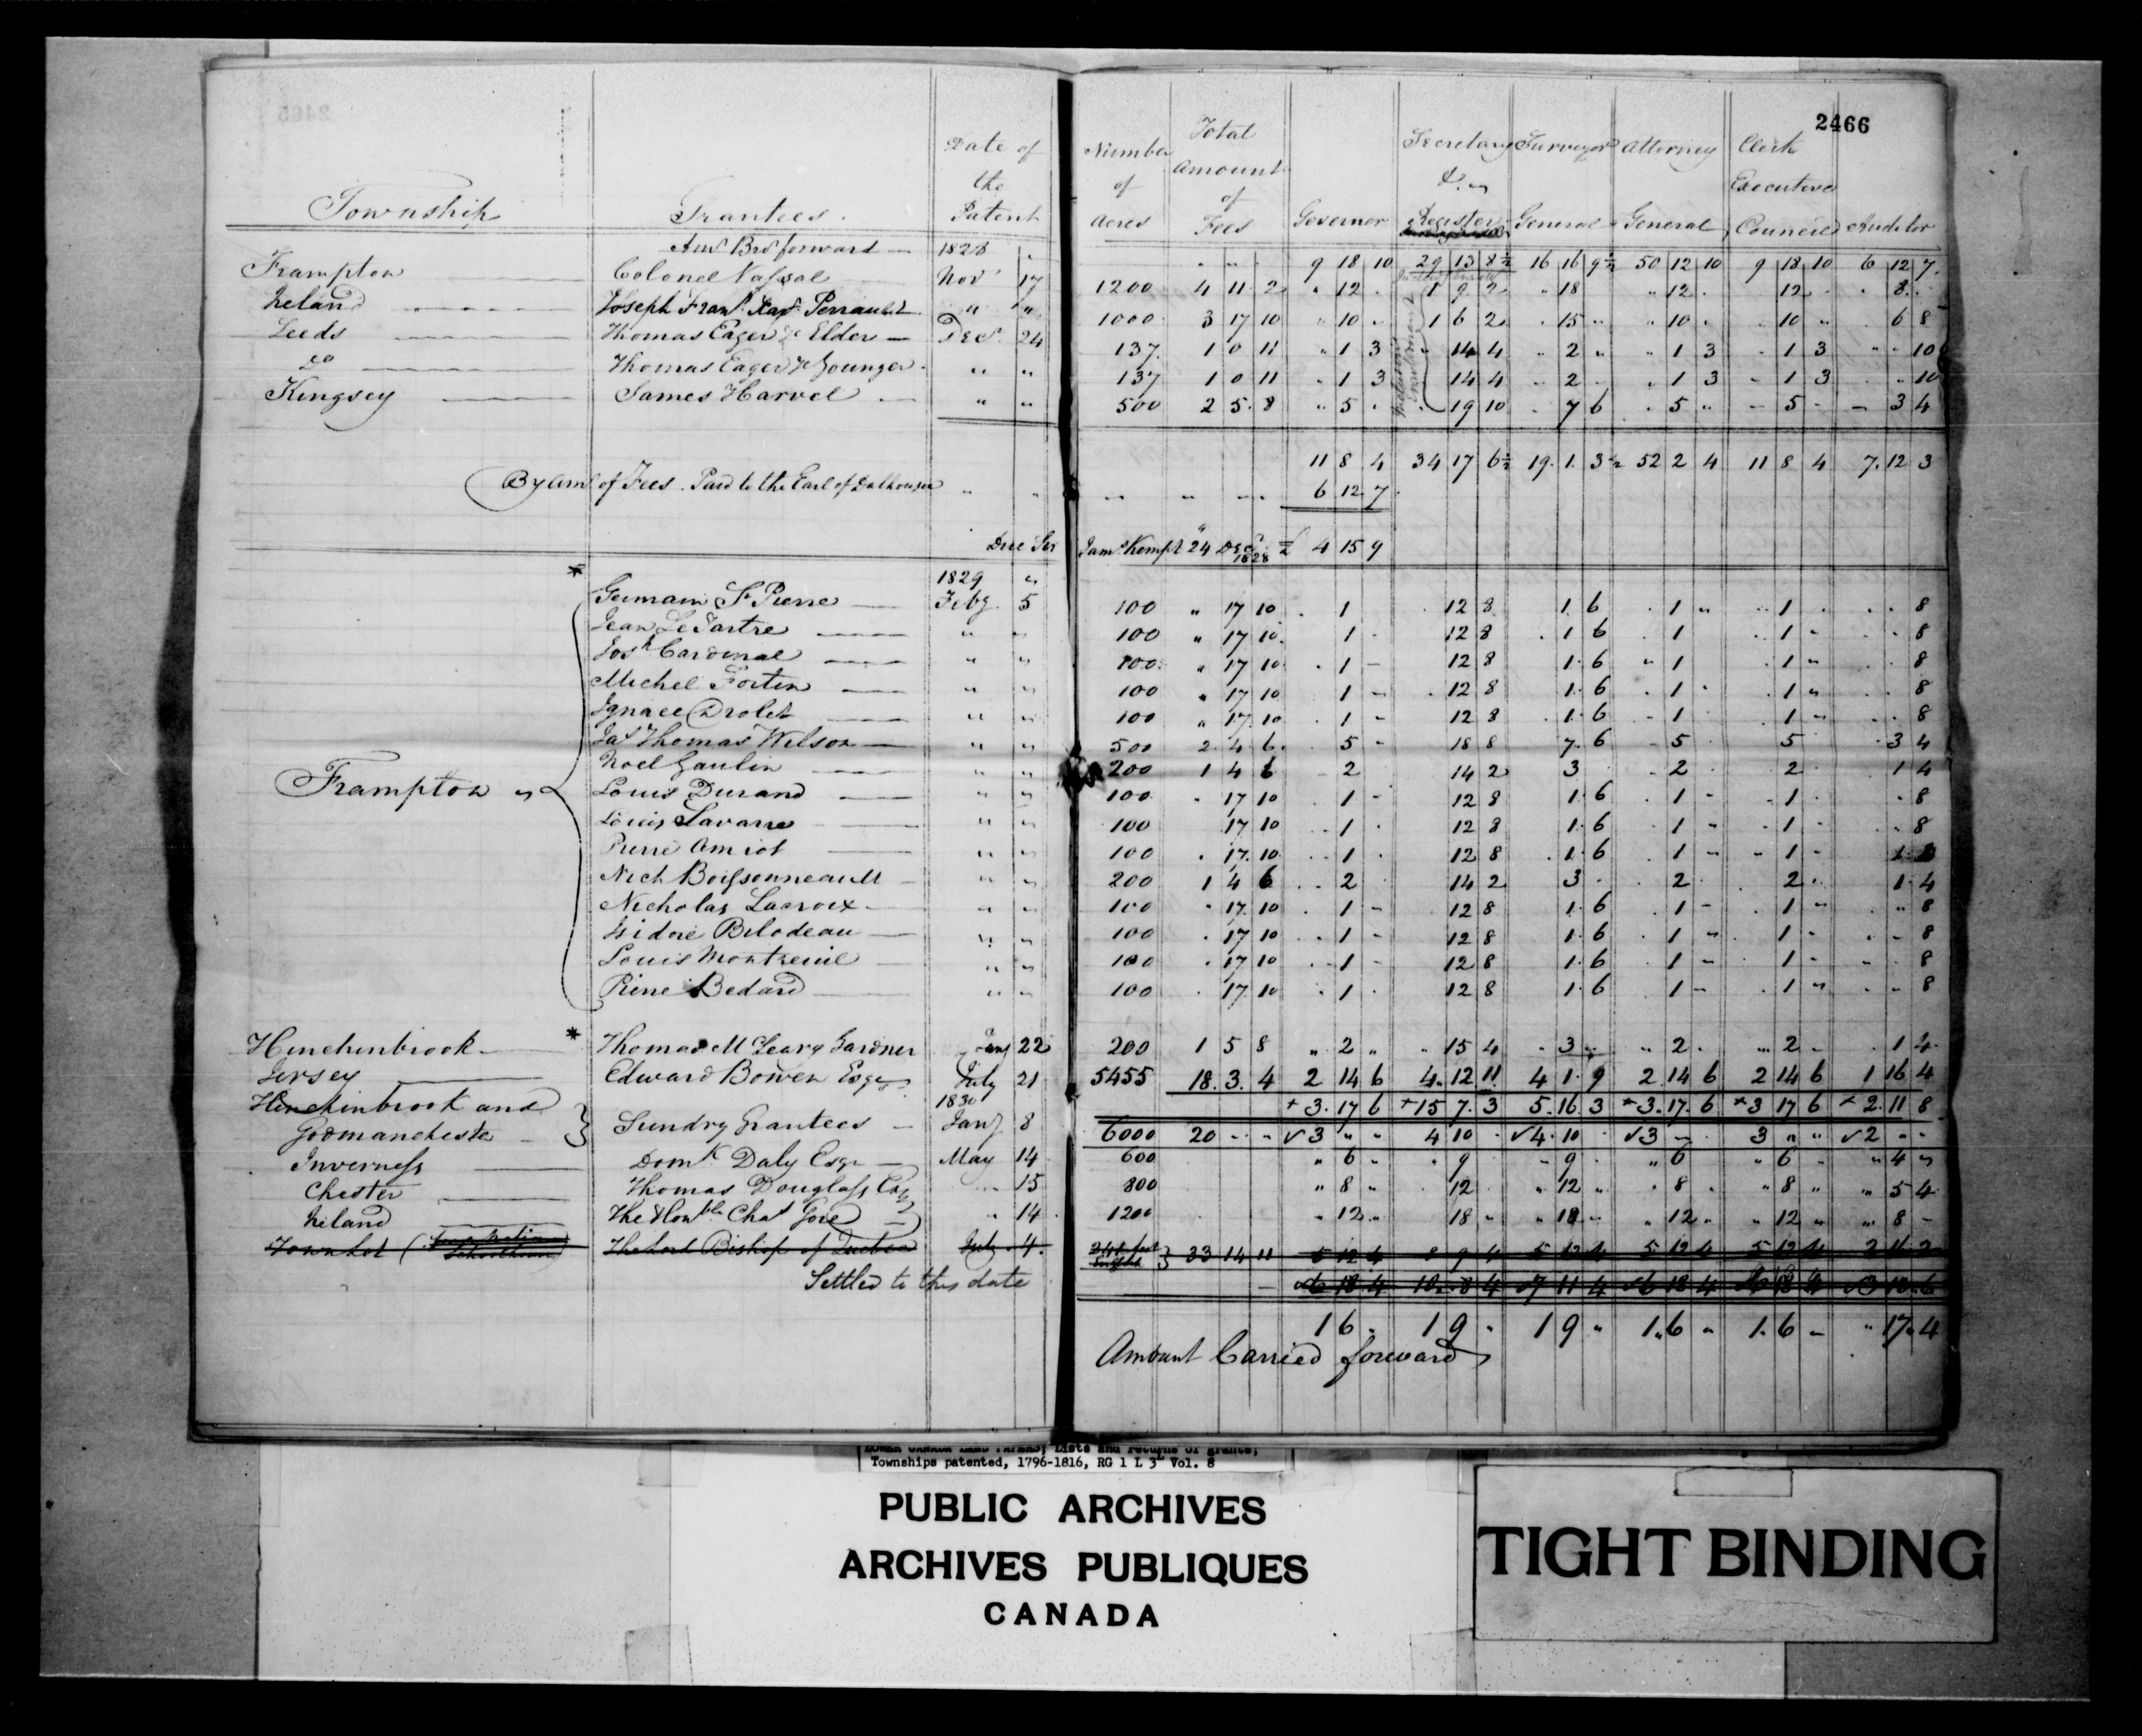 2466
Township Grantees. Date of the Patent Number of Acres Total Amount of Fees Governor Secretary & Register Surveyor General Attorney General Clerk Executive Council Auditor
Amt Brt forward — 1828 9 18 10 29 13 8½ 16 16 9½ 50 12 10 9 18 10 6 12 7
Frampton Colonel Vassal Novr 17 1200 4 11 2 " 12 . 1 9 2 " 18 " 12 . 12 . 8
Ireland Joseph Frans Xavr Perrault " " 1000 3 17 10 " 10 " 1 6 2 . 15 " " 10 . . 10 " 6 8
Leeds Thomas Eager ye Elder — Decr 24 137 1 0 11 " 1 3 " 14 4 " 2 " " 1 3 . 1 3 " " 10
Do Thomas Eager ye Younger " " 137 1 0 11 " 1 3 14 4 " 2 . " 1 3 - 1 3 . " 10
Kingsey James Harvel — " " 500 2 5 8 " 5 . . 19 10 . 7 6 . 5 " - 5 - - 3 4
11 8 4 34 17 6½ 19 1 3½ 52 2 4 11 8 4 7 12 3
By Amt of Fees Paid to the Earl of Dalhousie " " " " " 6 12 7
Due Sir Jams Kempt 24 Decr 1828 £ 4 15 9
1829 "
* Germain St Pierre — Feby 5 100 " 17 10 . 1 . 12 8 1 6 . 1 " " 1 . . . 8
Jean Le Tartre — " " 100 " 17 10 1 - 12 8 . 1 6 . 1 . 1 " . . 8
Josh Cardinal — " " 100 " 17 10 . 1 - 12 8 1 6 " 1 . 1 " . . 8
Michel Fortin — " " 100 " 17 10 1 - . 12 8 1 6 . 1 . . 1 " . . 8
Ignace Drolet — " " 100 " 17 10 . 1 - 12 8 . 1 6 - 1 . 1 - . . 8
Jas Thomas Wilson — " " 500 2 4 6 5 - 18 8 7 6 - 5 5 . 3 4
Noel Gaulin — " " 200 1 4 6 - 2 14 2 3 - 2 . 2 . 1 4
Frampton " Louis Durand — " " 100 . 17 10 . 1 - 12 8 1 6 . 1 - - 1 . . 8
Louis Lavarre — " " 100 17 10 . . 1 . 12 8 1 6 . 1 - - 1 - . . 8
Pierre Amiot — " " 100 . 17 10 . . 1 . 12 8 . 1 6 . 1 - - 1 -
Nich Boissonneault — " " 200 1 4 6 . . 2 14 2 3 . . 2 . 2 . . 1 4
Nicholas Lacroix — " " 100 . 17 10 . 1 - . 12 8 1 6 . 1 - . 1 - . " 8
Isidore Bilodeau — " " 100 . 17 10 . . 1 - 12 8 1 6 . 1 " . 1 - . - 8
Louis Montreuil — " " 100 . 17 10 . - 1 - 12 8 1 6 . 1 - . 1 - - . 8
Pierre Bedard — " " 100 . 17 10 . 1 . 12 8 1 6 1 - . 1 " . - 8
Hinchinbrook — * Thomas McLeary Gardner Jany 22 200 1 5 8 " 2 " " 15 4 . 3 " " 2 . " 2 - . 1 4
Jersey — Edward Bowen Esqr July 21 5455 18 3 4 2 14 6 4 12 11 4 1 9 2 14 6 2 14 6 1 16 4
1830 + 3 17 6 + 15 7 3 5 16 3 + 3 17 6 + 3 17 6 + 2 11 8
Hinchinbrook and
Godmanchester — Sundry Grantees — Jany 8 6000 20 - " ✓3 " " 4 10 . ✓4 10 . ✓3 - 3 " " ✓2 - -
Inverness — Domk Daly Esqr — May 14 600 " 6 " . 9 - 9 . " 6 " 6 - " 4 "
Chester — Thomas Douglass Esq . . . 15 800 " 8 " . 12 . " 12 " . 8 . " 8 " " 5 4
Ireland — The Honble Chas Gore — " 14 1200 " 12 " 18 " " 18 - " 12 " " 12 " " 8 -
Town Lot The Lord Bishop of Quebec July 4 33 14 11 5 12 4 8 9 4 5 12 4 5 12 4 5 12 4 2 11 2
Settled to this date — 6 18 4 10 8 4 ✓7 11 4 6 18 4 6 18 4
1 6 . 1 9 . 1 9 " 1 6 " 1 6 - " 17 4
Amount Carried forward
LOWER CANADA LAND PAPERS; Lists and returns of grants;
Townships patented, 1796-1816, RG 1 L 3 Vol. 8
PUBLIC ARCHIVES
ARCHIVES PUBLIQUES
CANADA
TIGHT BINDING